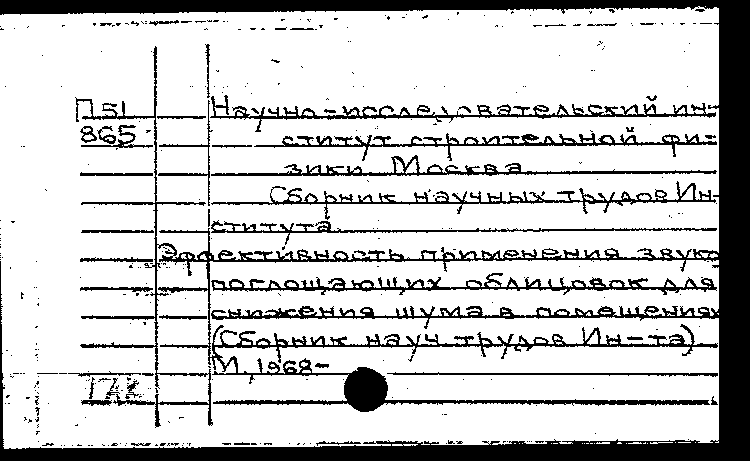 П51 Научно-исследовательский ин-
865 ститут строительной фи-
зики. Москва.
Сборник научных трудов Ин-
ститута.
Эффективность применения звуко
поглощающих облицовок для
снижения шума в помещениях
(Сборник науч трудов Ин-та)
М., 1968-